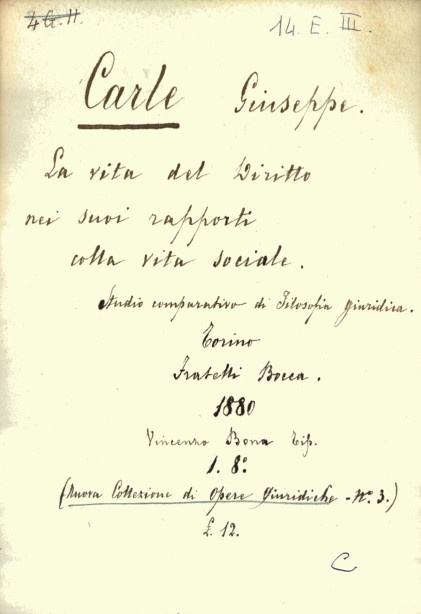 4 G. H.
14. E. III.
Carle Giuseppe.
La vita del Diritto
nei suoi rapporti
colla vita sociale.
Studio comparativo di Filosofia giuridica.
Torino
Fratelli Bocca.
1880
Vincenzo Bona Tip.
1. 8.º
(Nuova Collezione di Opere Giuridiche - Nº. 3.)
£. 12.
C